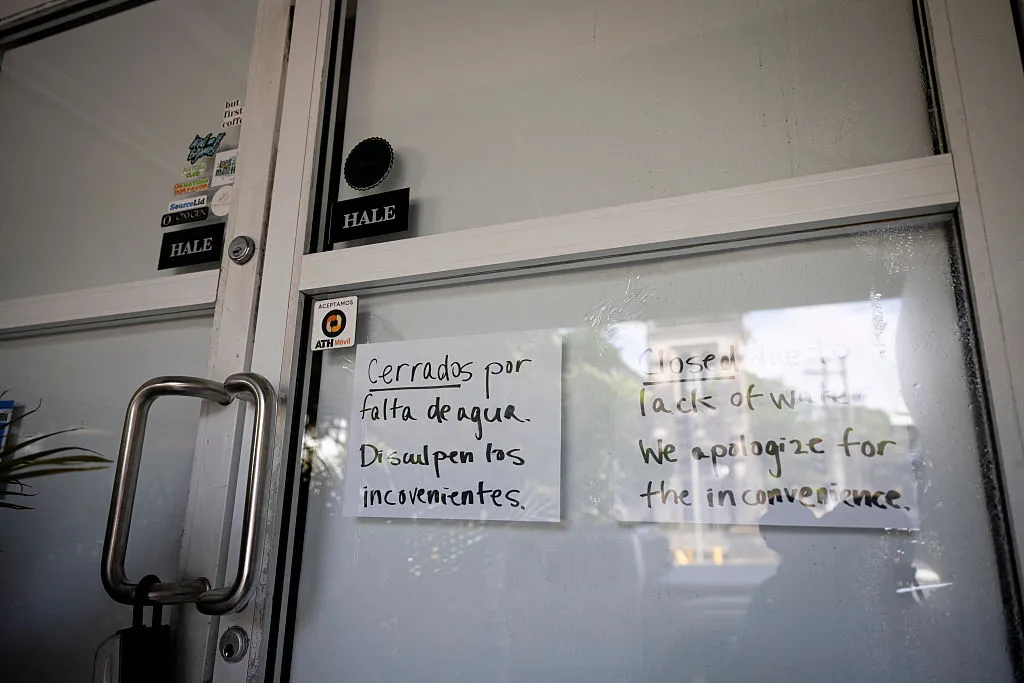 but
first
coffe
SourceLid
OXYGEN
HALE
HALE
ACEPTAMOS
ATH Móvil
Cerrados por
falta de agua.
Disculpen los
incovenientes.
Closed due to
lack of water
We apologize for
the inconvenience.